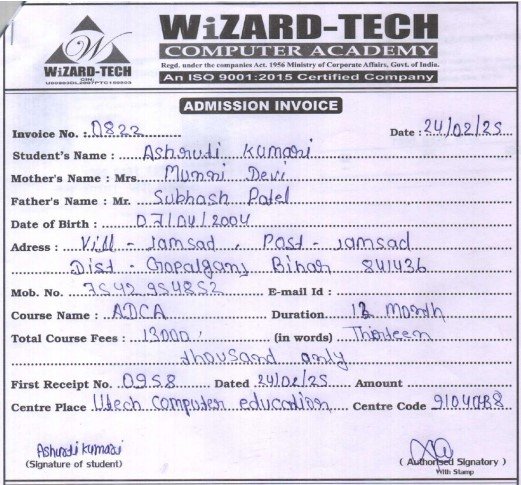 WiZARD-TECH
COMPUTER ACADEMY
Regd. under the companies Act. 1956 Ministry of Corporate Affairs, Govt. of India.
An ISO 9001:2015 Certified Company
W
WiZARD-TECH
CIN:
U80903DL2007PTC159503
ADMISSION INVOICE
Invoice No. : 0822 Date : 24/02/25
Student's Name : Ashruti Kumari
Mother's Name : Mrs. Munni Devi
Father's Name : Mr. Subhash Patel
Date of Birth : 07/04/2004
Adress : Vill - Jamsad, Post - Jamsad
Dist - Gopalganj Bihar 841436
Mob. No. 7542954852 E-mail Id :
Course Name : ADCA Duration 12 Month
Total Course Fees : 13000/ (in words) Thirteen
thousand only
First Receipt No. 0958 Dated 24/02/25 Amount
Centre Place Utech Computer education Centre Code 9104788
Ashruti Kumari
(Signature of student)
( Authorised Signatory )
With Stamp